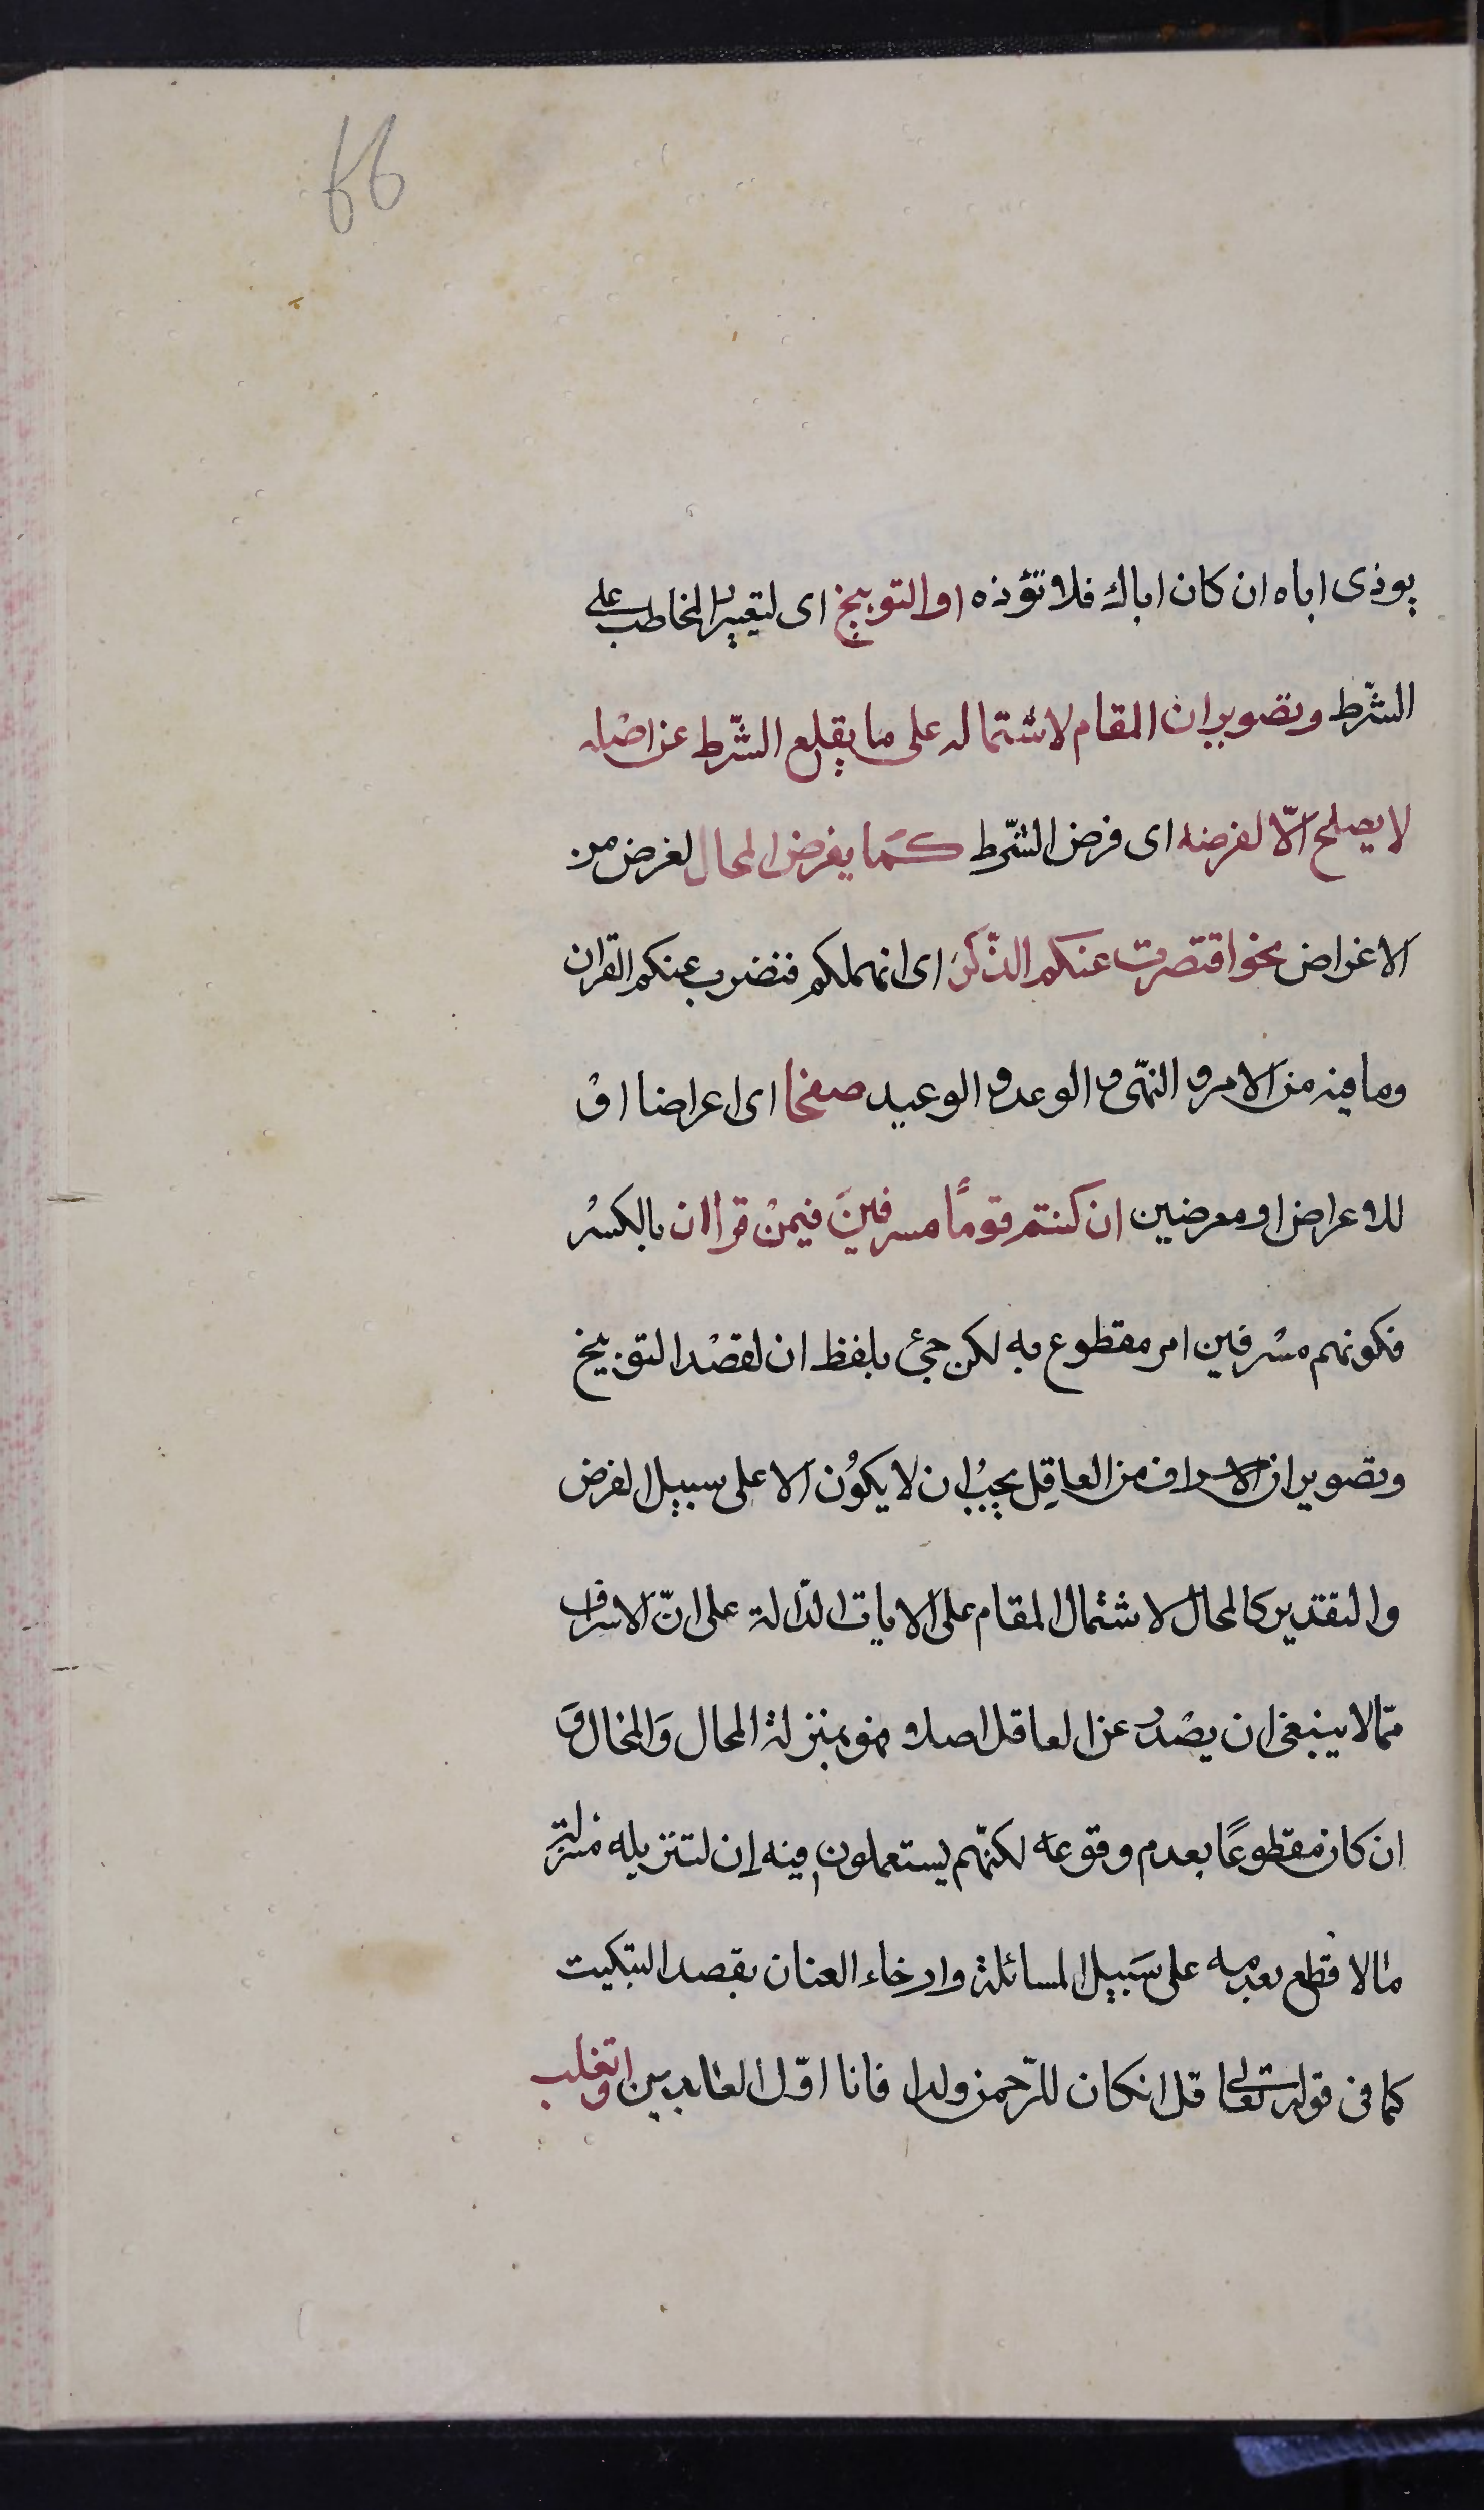 66
يوذى اباه ان كان اباك فلا تؤذه او التوبيخ اى لتعيير المخاطب على
الشّرط وتصوير ان المقام لاشتماله على ما يقلع الشّرط عن اصْله
لا يصلح الّا لفرضه اى فرض الشّرط كما يفرض المحال لغرض من
الاغراض نحو افتضرب عنكم الذّكر اى انهملكم فنضرب عنكم القران
وما فيه من الامر والنهّى والوعد والوعيد صفحا اى اعراضا اوْ
للاعراض او معرضين ان كنتم قومًا مسرفينَ فيمنْ قرا ان بالكسْر
فكونهم مسْرفين امر مقطوع به لكن جئ بلفظ ان لقصْد التوبيخ
وتصوير ان الاسراف من العاقِل يجبُ ان لا يكوُن الا على سبيل الفرض
والتقدير كالمحال لاشتمال المقام على الايات الدّالة على انّ الاسراف
ممّا لا ينبغى ان يصْدر عن العاقل اصلا فهو بمنزلة المحال وَالمحال وَ
ان كان مقطوعًا بعدم وقوعه لكنهّم يستعملون فيه إن لتنزيله منزلة
ما لا قطع بعدمه على سَبيل المسائلة وارخاء العنان بقصد التبكيت
كما فى قوله تعالى قل انكان للرّحمن ولد فانا اوّل العابدين او تغلب